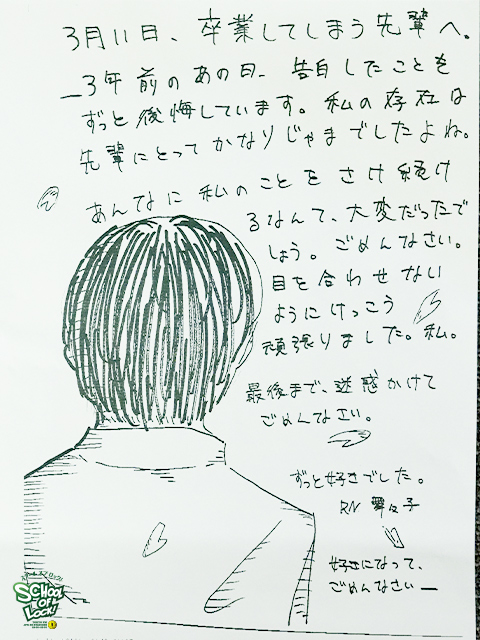 3月11日、卒業してしまう先輩へ。
―3年前のあの日、告白したことを
ずっと後悔しています。私の存在は
先輩にとってかなりじゃまでしたよね。
あんなに私のことをさけ続け
るなんて、大変だったで
しょう。ごめんなさい。
目を合わせない
ようにけっこう
頑張りました。私。
最後まで、迷惑かけて
ごめんなさい。
ずっと好きでした。
RN 舞々子
好きになって、
ごめんなさい―
SCHOOL
OF
LOCK!